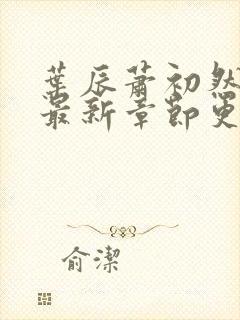 葉辰蕭初然
最新章節更
俞潔